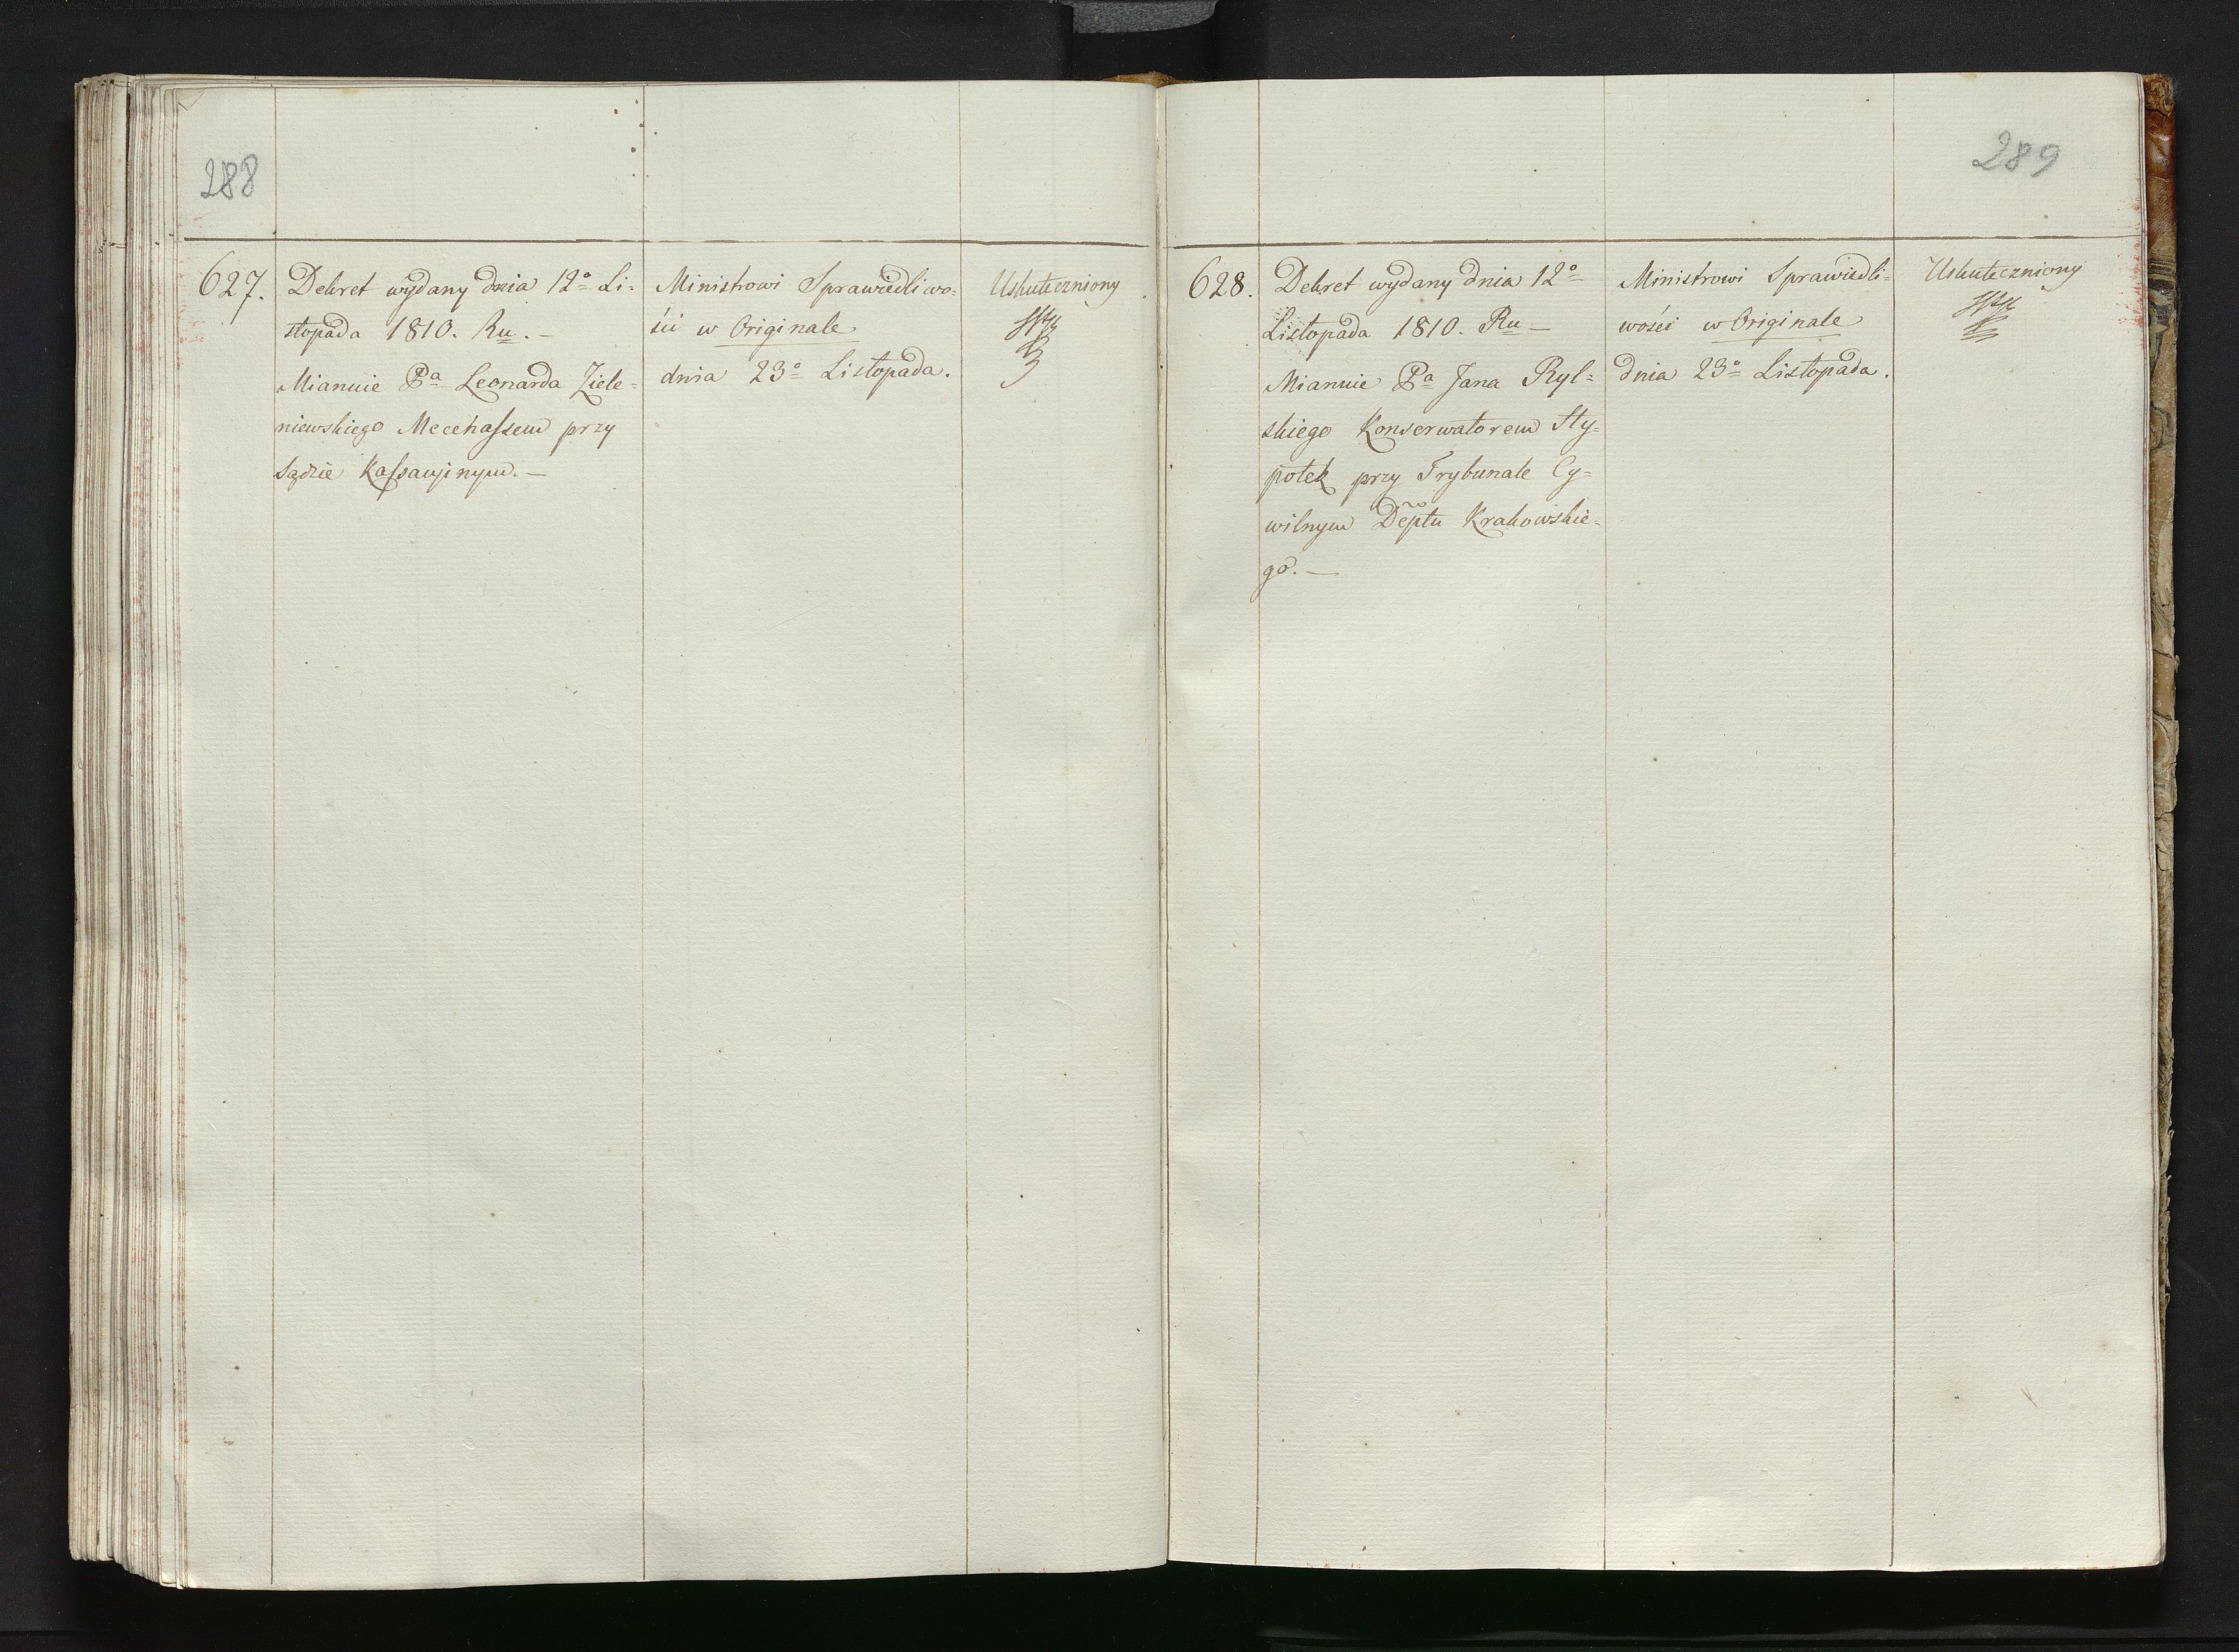 288
627.
Dekret wydany dnia 12º Li-
stopada 1810. Ru. —
Mianuie Pa Leonarda Ziele-
niewskiego Mecenassem przy
Sądzie Kassacyinym. —
Ministrowi Sprawiedliwo-
ści w Originale
dnia 23º Listopada.
Uskuteczniony
289
628.
Dekret wydany dnia 12º
Listopada 1810. Ru —
Mianuie Pa Jana Ryl-
skiego Konserwatorem Hy-
potek przy Trybunale Cy-
wilnym Deptu Krakowskie-
go. —
Ministrowi Sprawiedli-
wości w Originale
dnia 23º Listopada.
Uskuteczniony